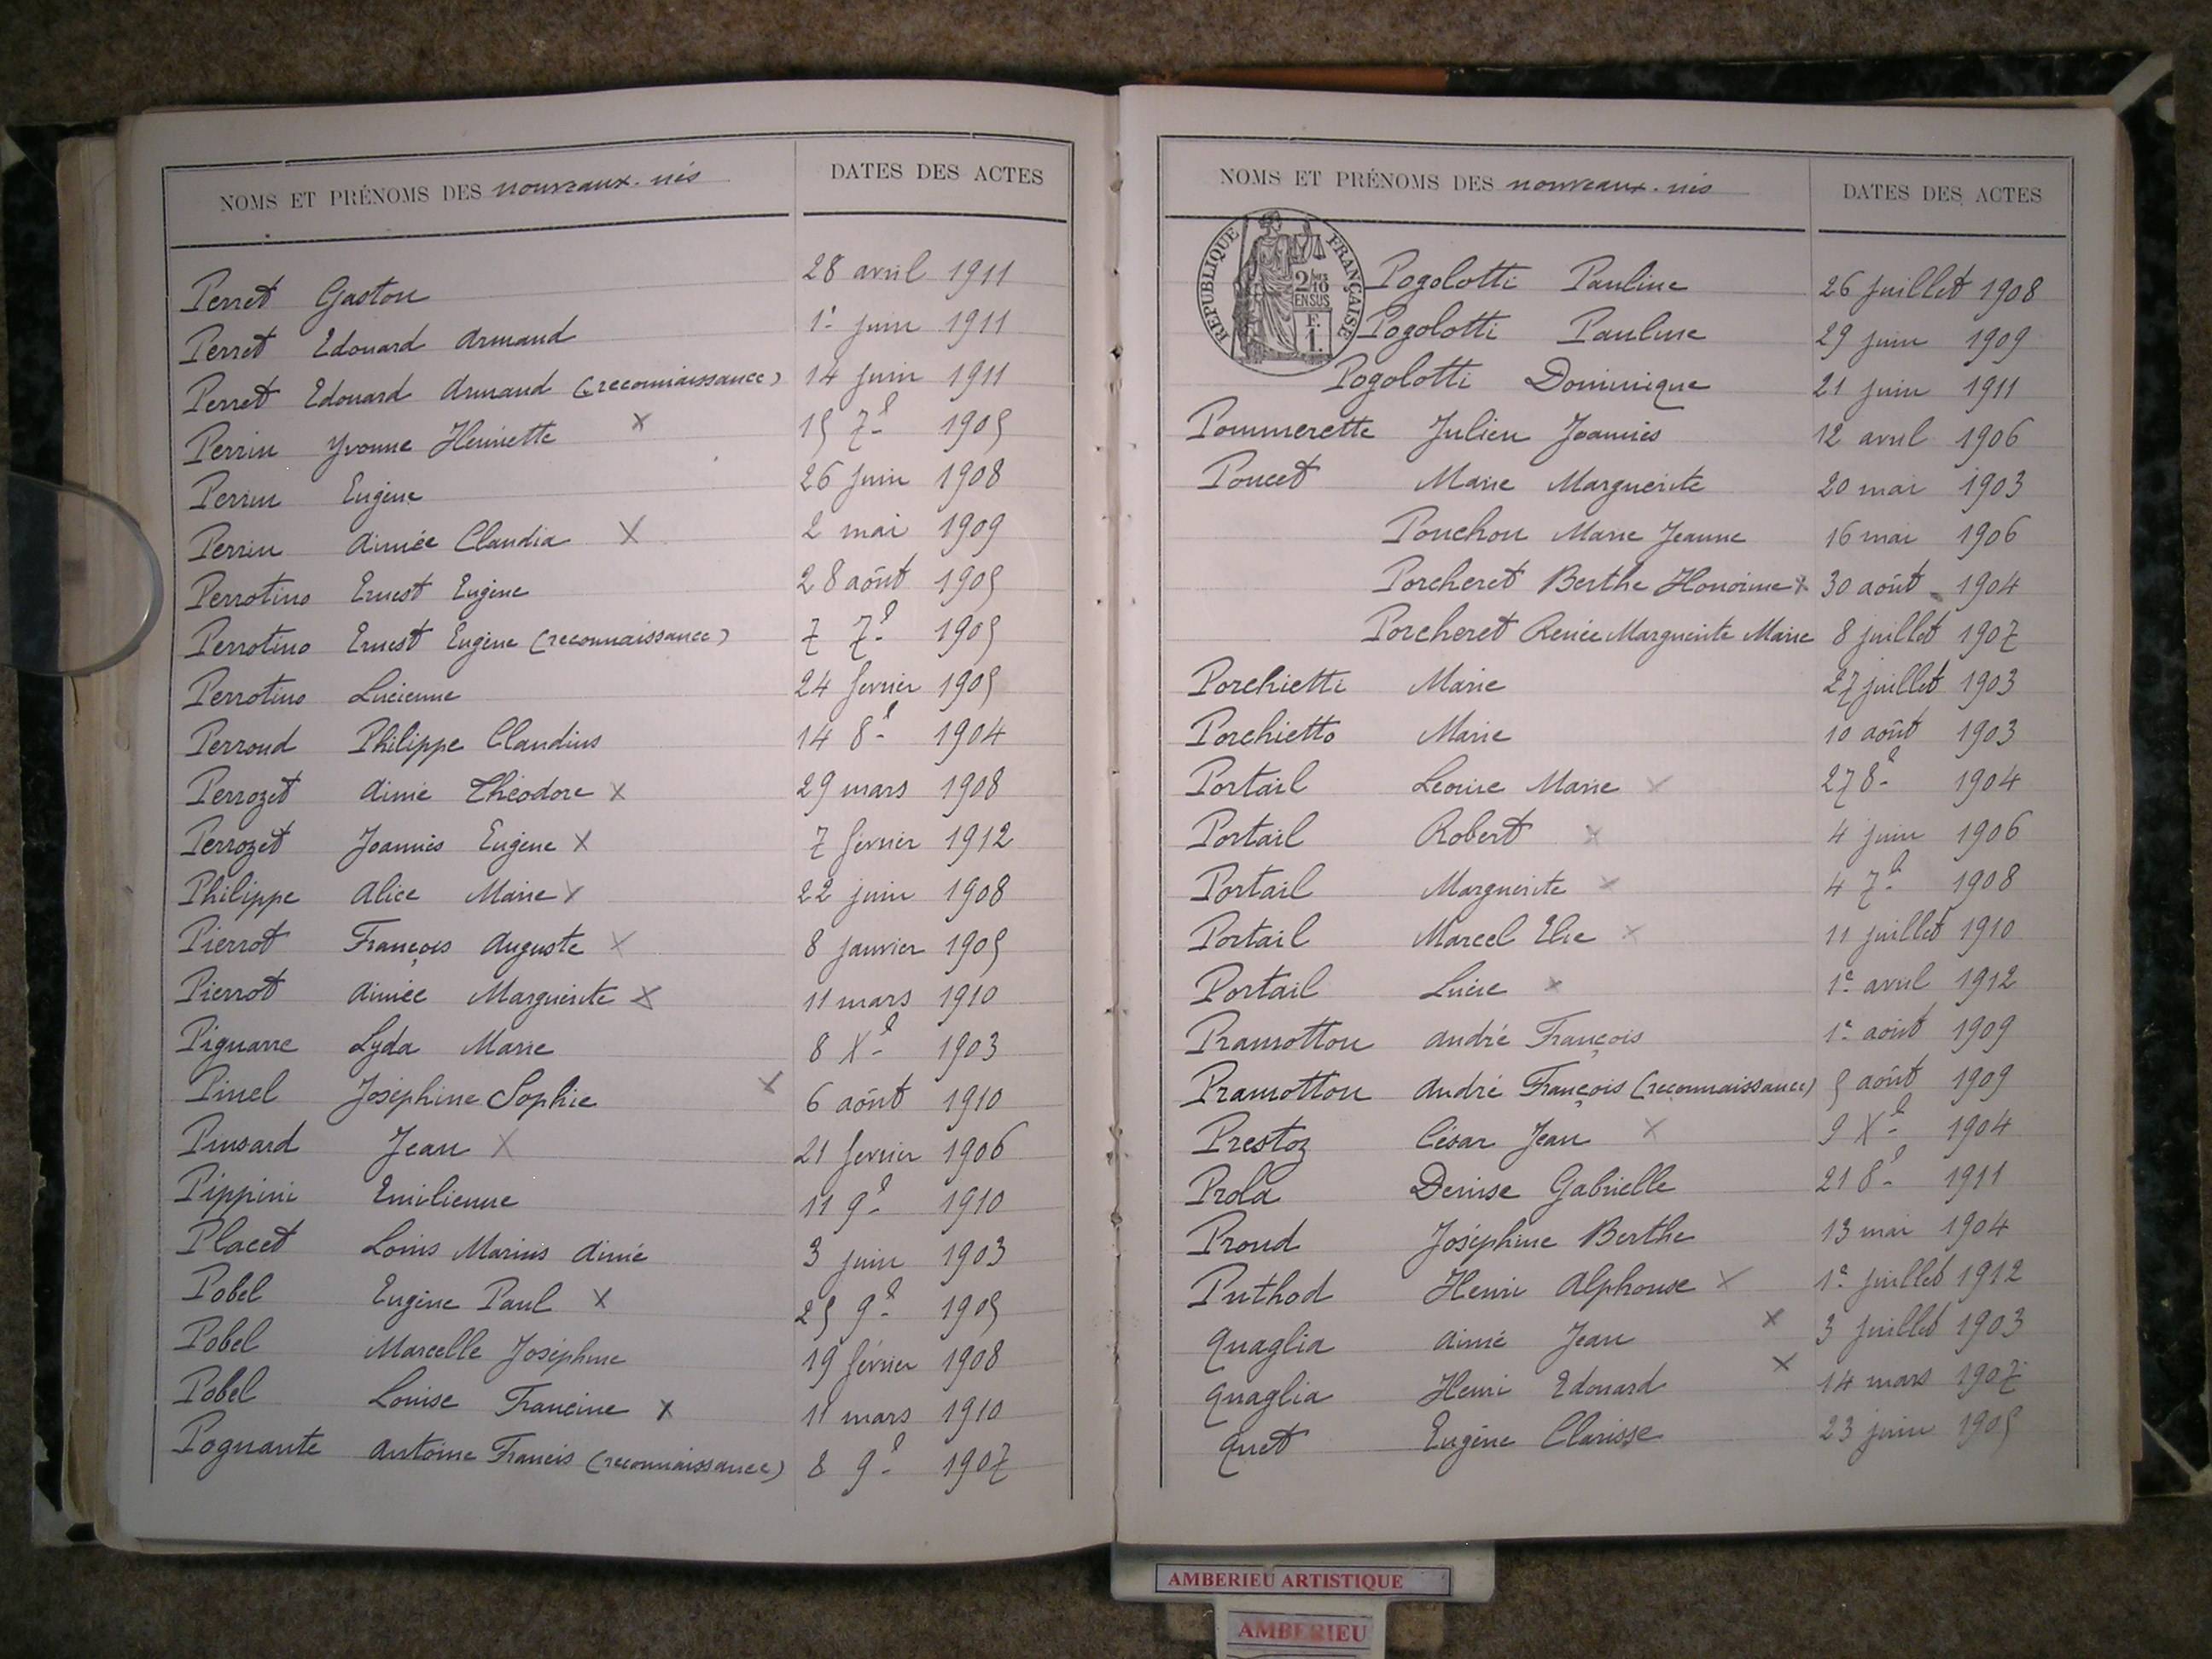 NOMS ET PRÉNOMS DES nouveaux-nés DATES DES ACTES
Perret Gaston 28 avril 1911
Perret Edouard Armand 1er juin 1911
Perret Edouard Armand (reconnaissance) 14 juin 1911
Perrin Yvonne Henriette X 15 7e 1905
Perrin Eugène 26 juin 1908
Perrin Aimée Claudia X 2 mai 1909
Perrotino Ernest Eugène 28 août 1905
Perrotino Ernest Eugène (reconnaissance) 7 7e 1905
Perrotino Lucienne 24 février 1905
Perroud Philippe Claudius 14 8e 1904
Perrozet Aimé Théodore X 29 mars 1908
Perrozet Joannès Eugène X 7 février 1912
Philippe Alice Marie X 22 juin 1908
Pierrot François Auguste X 8 janvier 1905
Pierrot Aimée Marguerite X 11 mars 1910
Pignarre Lyda Marie 8 Xe 1903
Pinel Joséphine Sophie X 6 août 1910
Pinsard Jean X 21 février 1906
Pippini Emilienne 11 9e 1910
Placet Louis Marius Aimé 3 juin 1903
Pobel Eugène Paul X 25 9e 1905
Pobel Marcelle Joséphine 19 février 1908
Pobel Louise Francine X 11 mars 1910
Pognante Antoine Francis (reconnaissance) 8 9e 1907
NOMS ET PRÉNOMS DES nouveaux-nés DATES DES ACTES
RÉPUBLIQUE FRANÇAISE
2/10
EN SUS
F.
1.
Pogolotti Pauline 26 juillet 1908
Pogolotti Pauline 29 juin 1909
Pogolotti Dominique 21 juin 1911
Pommerette Julien Joannès 12 avril 1906
Poncet Marie Marguerite 20 mai 1903
Ponchon Marie Jeanne 16 mai 1906
Porcheret Berthe Honorine X 30 août 1904
Porcheret Renée Marguerite Marie 8 juillet 1907
Porchietti Marie 27 juillet 1903
Porchietto Marie 10 août 1903
Portail Léonie Marie X 27 8e 1904
Portail Robert X 4 juin 1906
Portail Marguerite X 4 7e 1908
Portail Marcel Elie X 11 juillet 1910
Portail Lucie X 1er avril 1912
Pramotton André François 1er août 1909
Pramotton André François (reconnaissance) 5 août 1909
Prestoz César Jean X 9 Xe 1904
Prola Denise Gabrielle 21 8e 1911
Proud Joséphine Berthe 13 mai 1904
Puthod Henri Alphonse X 1er juillet 1912
Quaglia Aimé Jean X 3 juillet 1903
Quaglia Henri Edouard X 14 mars 1907
Quet Eugène Clarisse 23 juin 1905
AMBERIEU ARTISTIQUE
AMBERIEU